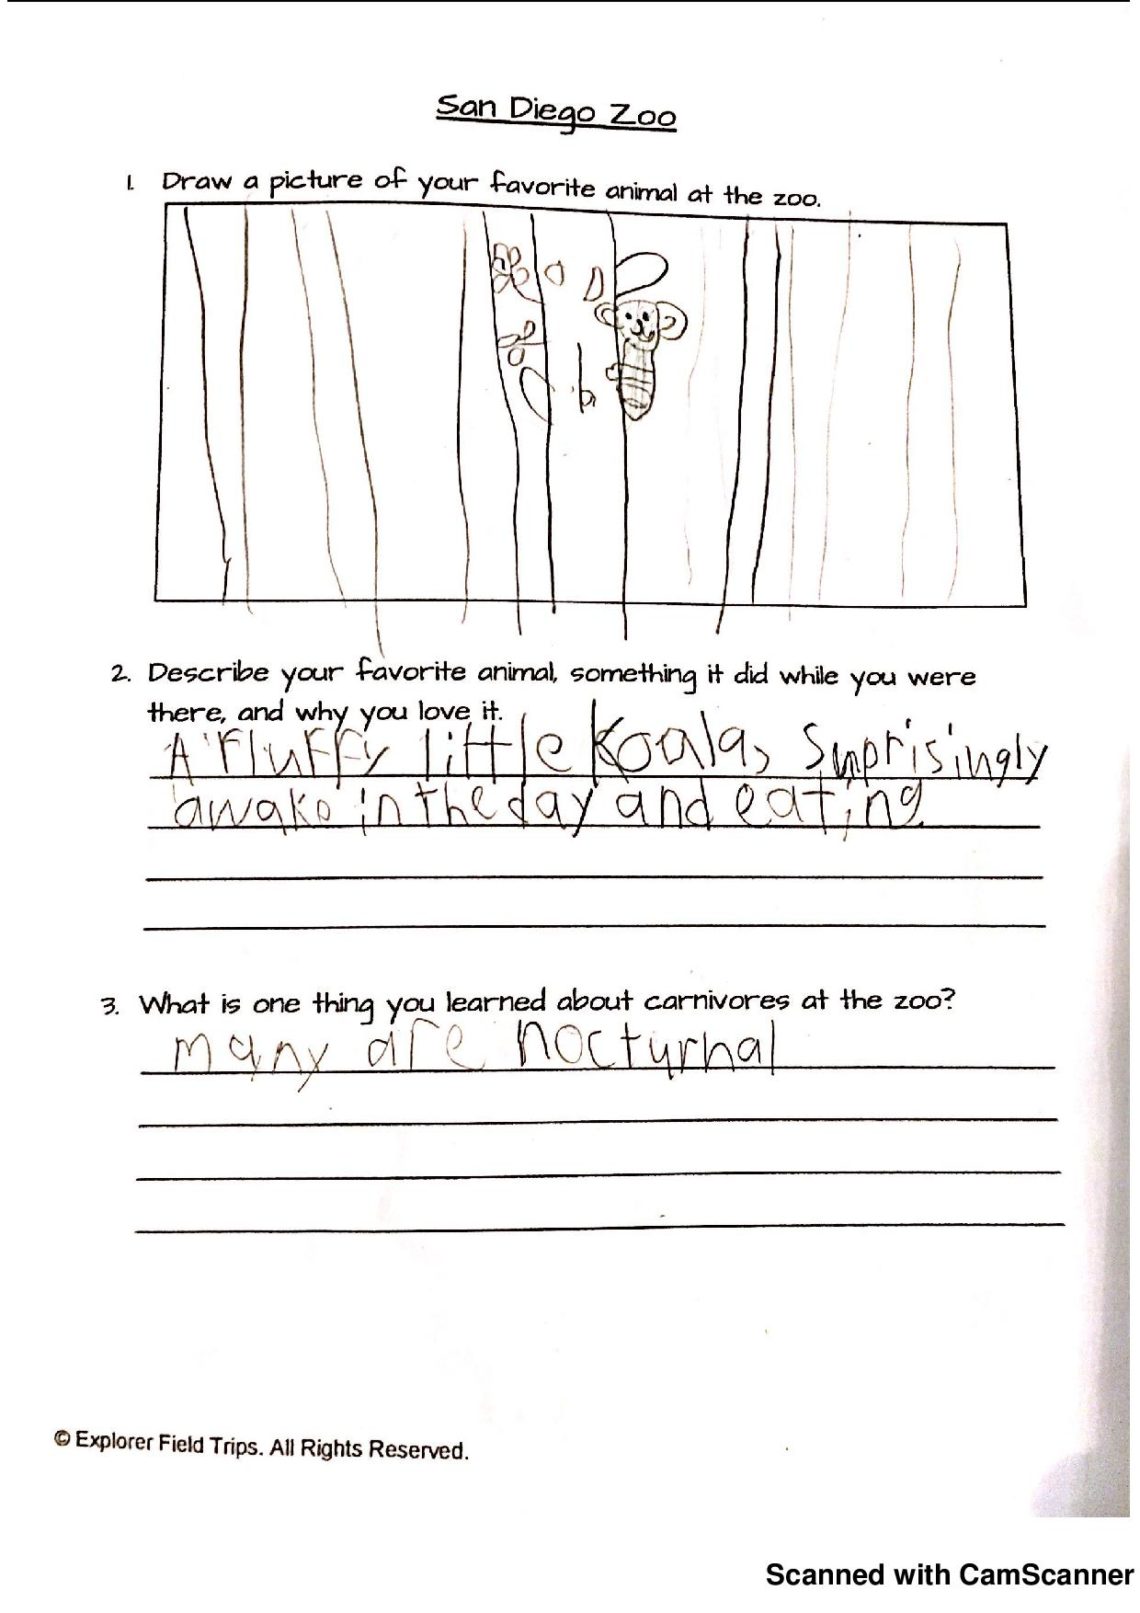 San Diego Zoo
1. Draw a picture of your favorite animal at the zoo.
2. Describe your favorite animal, something it did while you were
there, and why you love it.
A fluffy little koala, surprisingly
awake in the day and eating.
3. What is one thing you learned about carnivores at the zoo?
many are nocturnal
© Explorer Field Trips. All Rights Reserved.
Scanned with CamScanner